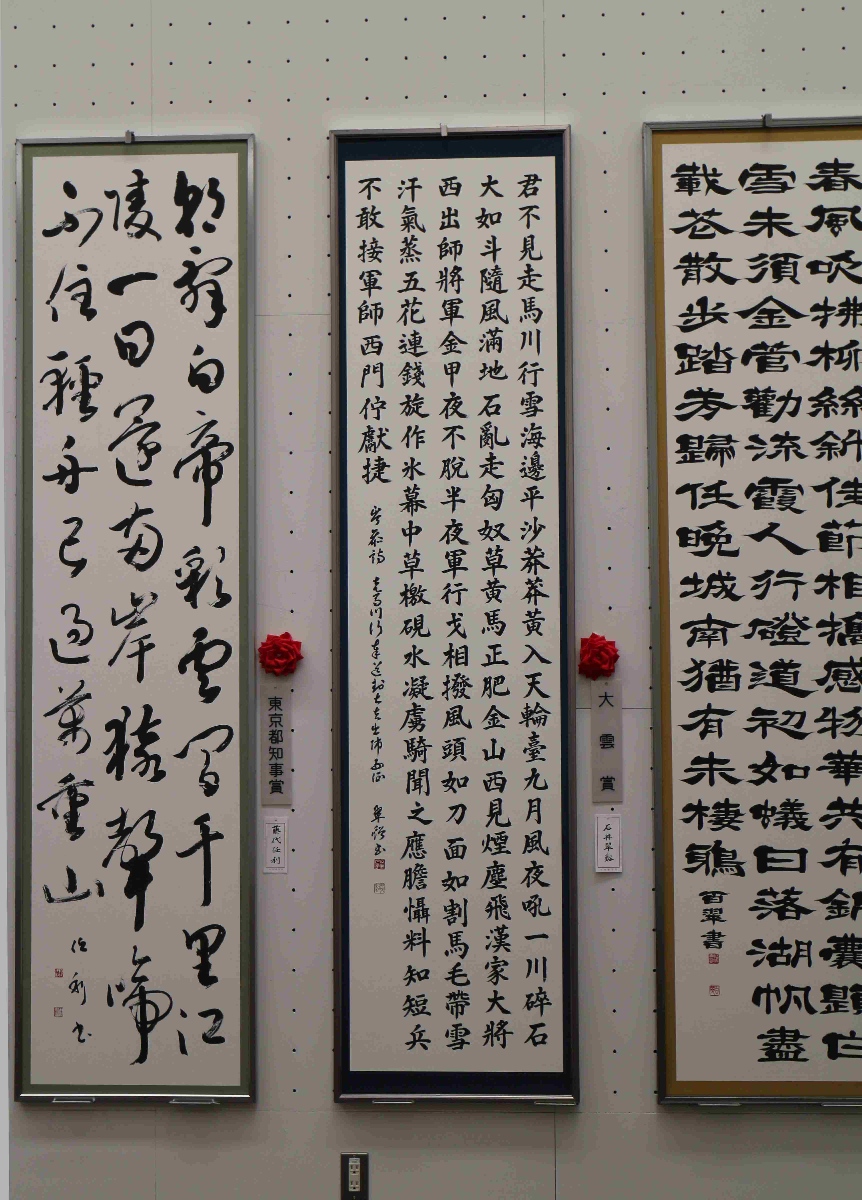 春風吹拂柳絲新佳節相攜感物華共有錦囊題白
雪未須金管勸流霞人行磴道初如蟻日落湖帆盡
載花散步踏芳歸任晚城南猶有未棲鴉
百翠書
大雲賞
石井翠谿
君不見走馬川行雪海邊平沙莽莽黃入天輪臺九月風夜吼一川碎石
大如斗隨風滿地石亂走匈奴草黃馬正肥金山西見煙塵飛漢家大將
西出師將軍金甲夜不脫半夜軍行戈相撥風頭如刀面如割馬毛帶雪
汗氣蒸五花連錢旋作氷幕中草檄硯水凝虜騎聞之應膽懾料知短兵
不敢接軍師西門佇獻捷
岑參詩 走馬川行奉送封大夫出師西征 翠谿書
東京都知事賞
朝辞白帝彩雲間千里江
陵一日還両岸猿聲啼
不住軽舟已過萬重山
任利書